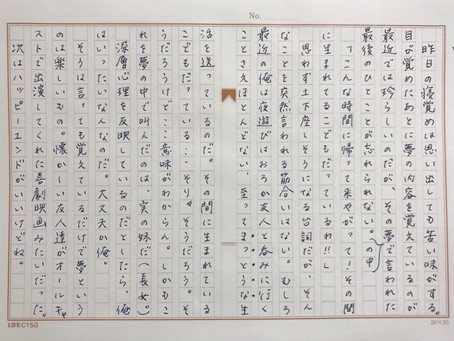 No.
昨日の寝覚めは思い出しても苦い味がする。
目が覚めたあとに夢の内容を覚えているのが
最近では珍らしいのだが、その夢の中で言われた
最後のひとことが忘れられない。
「こんな時間に帰って来やがって！その間
に生まれているわ!!」
思わず土下座しそうになる台詞だが、そん
なことを突然言われる筋合いはない。むしろ
最近の俺は夜遊びはおろか友人と呑みに行く
ことさえほとんどない、至ってまっとうな生
活を送っているのだ。その間に生まれている
ってどうゆうこと…そりゃそうだろう。そ
うだろうけど…意味がわからん。しかもそ
れを夢の中で叫んだのは、実の妹だ（長女）。
深層心理を反映しているのだとしたら、俺
はいったいなんなのだ。大丈夫か俺。
そうは言っても覚えているだけで夢という
のは楽しいもの。懐かしい友人達がオールキャ
ストで出演してくれた喜劇映画みたいだった。
次はハッピーエンドがいいけどね。
LIFE C150
20×20